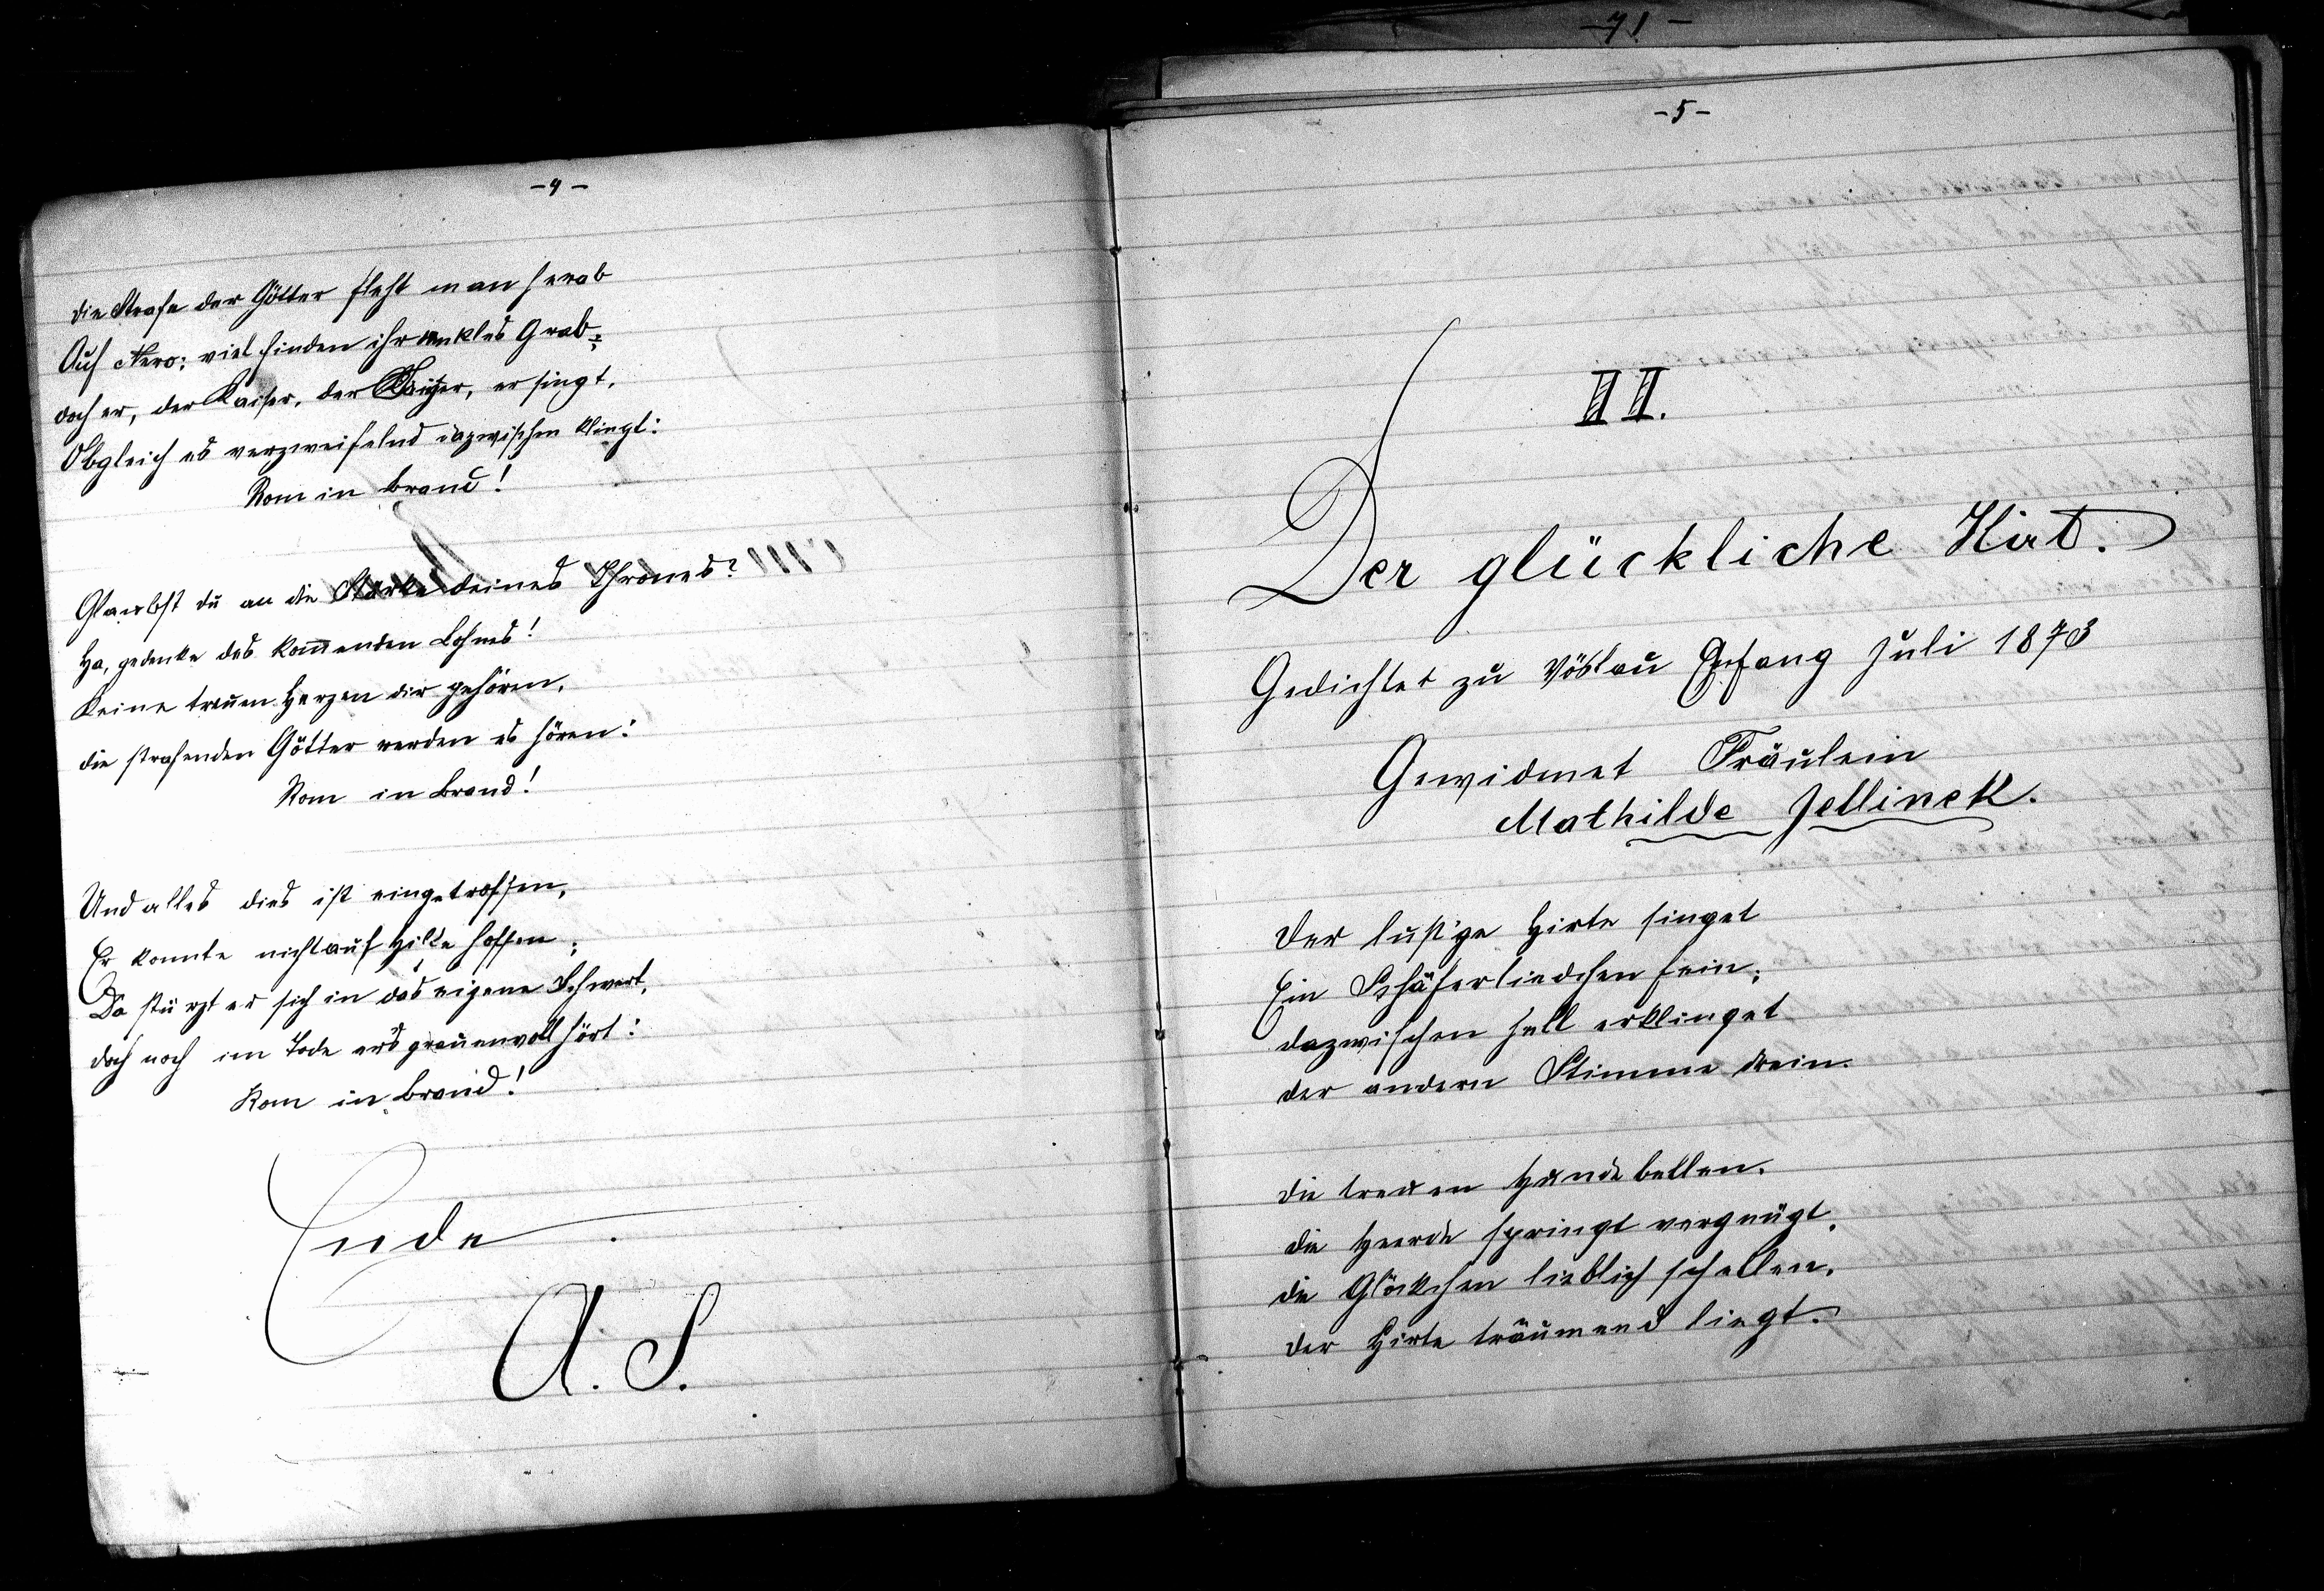 -4-
die Strafe der Götter fleht man herab
Auf Nero; viel finden ihr dunkles Grab;
doch er, der Kaiser, der Kaiser, er singt,
Obgleich es verzweifelnd dazwischen klingt:
Rom in Brand!
Glaubst du an die Stärke deines Thrones?
Ha, gedenke des kom̅enden Lohnes!
Keine treuen Herzen dir gehören,
die strafenden Götter werden es hören:
Rom in Brand!
Und alles dies ist eingetroffen,
Er konnte nicht auf Hilfe hoffen;
Da stürzt er sich in das eigene Schwert,
doch noch im Tode ers grauenvoll hört:
Rom in Brand!
Ende
A. S.
-71-
-5-
II.
Der glückliche Hirt.
Gedichtet zu Vöslau Anfang Juli 1873
Gewidmet Fräulein
Mathilde Jellinek.
Der lustige Hirte singet
Ein Schäferliedchen fein;
dazwischen hell erklinget
der andern Stimme drein.
die treuen Hunde bellen,
die Heerde springt vergnügt,
die Glöckchen lieblich schellen,
der Hirte träumend liegt.